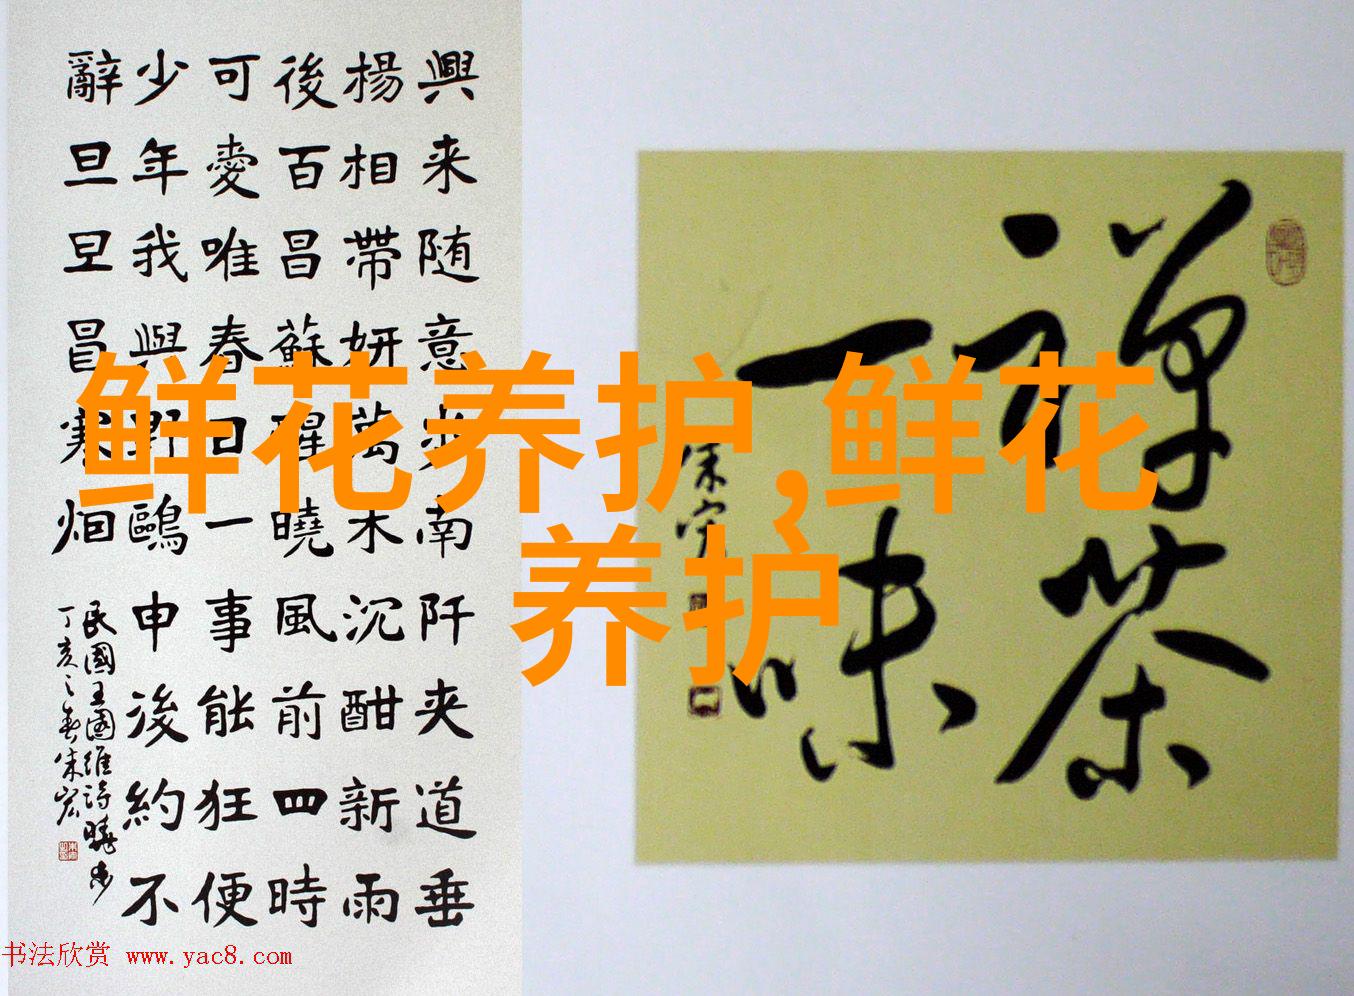 興来随意步南阡夹道垂
楊相帶妍萬木沉酣新雨
後百昌蘇醒曉風前四時
可愛唯春日一事能狂便
少年我與野鷗申後約不
辭旦旦冒寒烟
民國王國維詩曉步
丁亥之春朱宏
禅茶
一味
朱宏
鲜花养护,鲜花
养护
书法欣赏 www.yac8.com